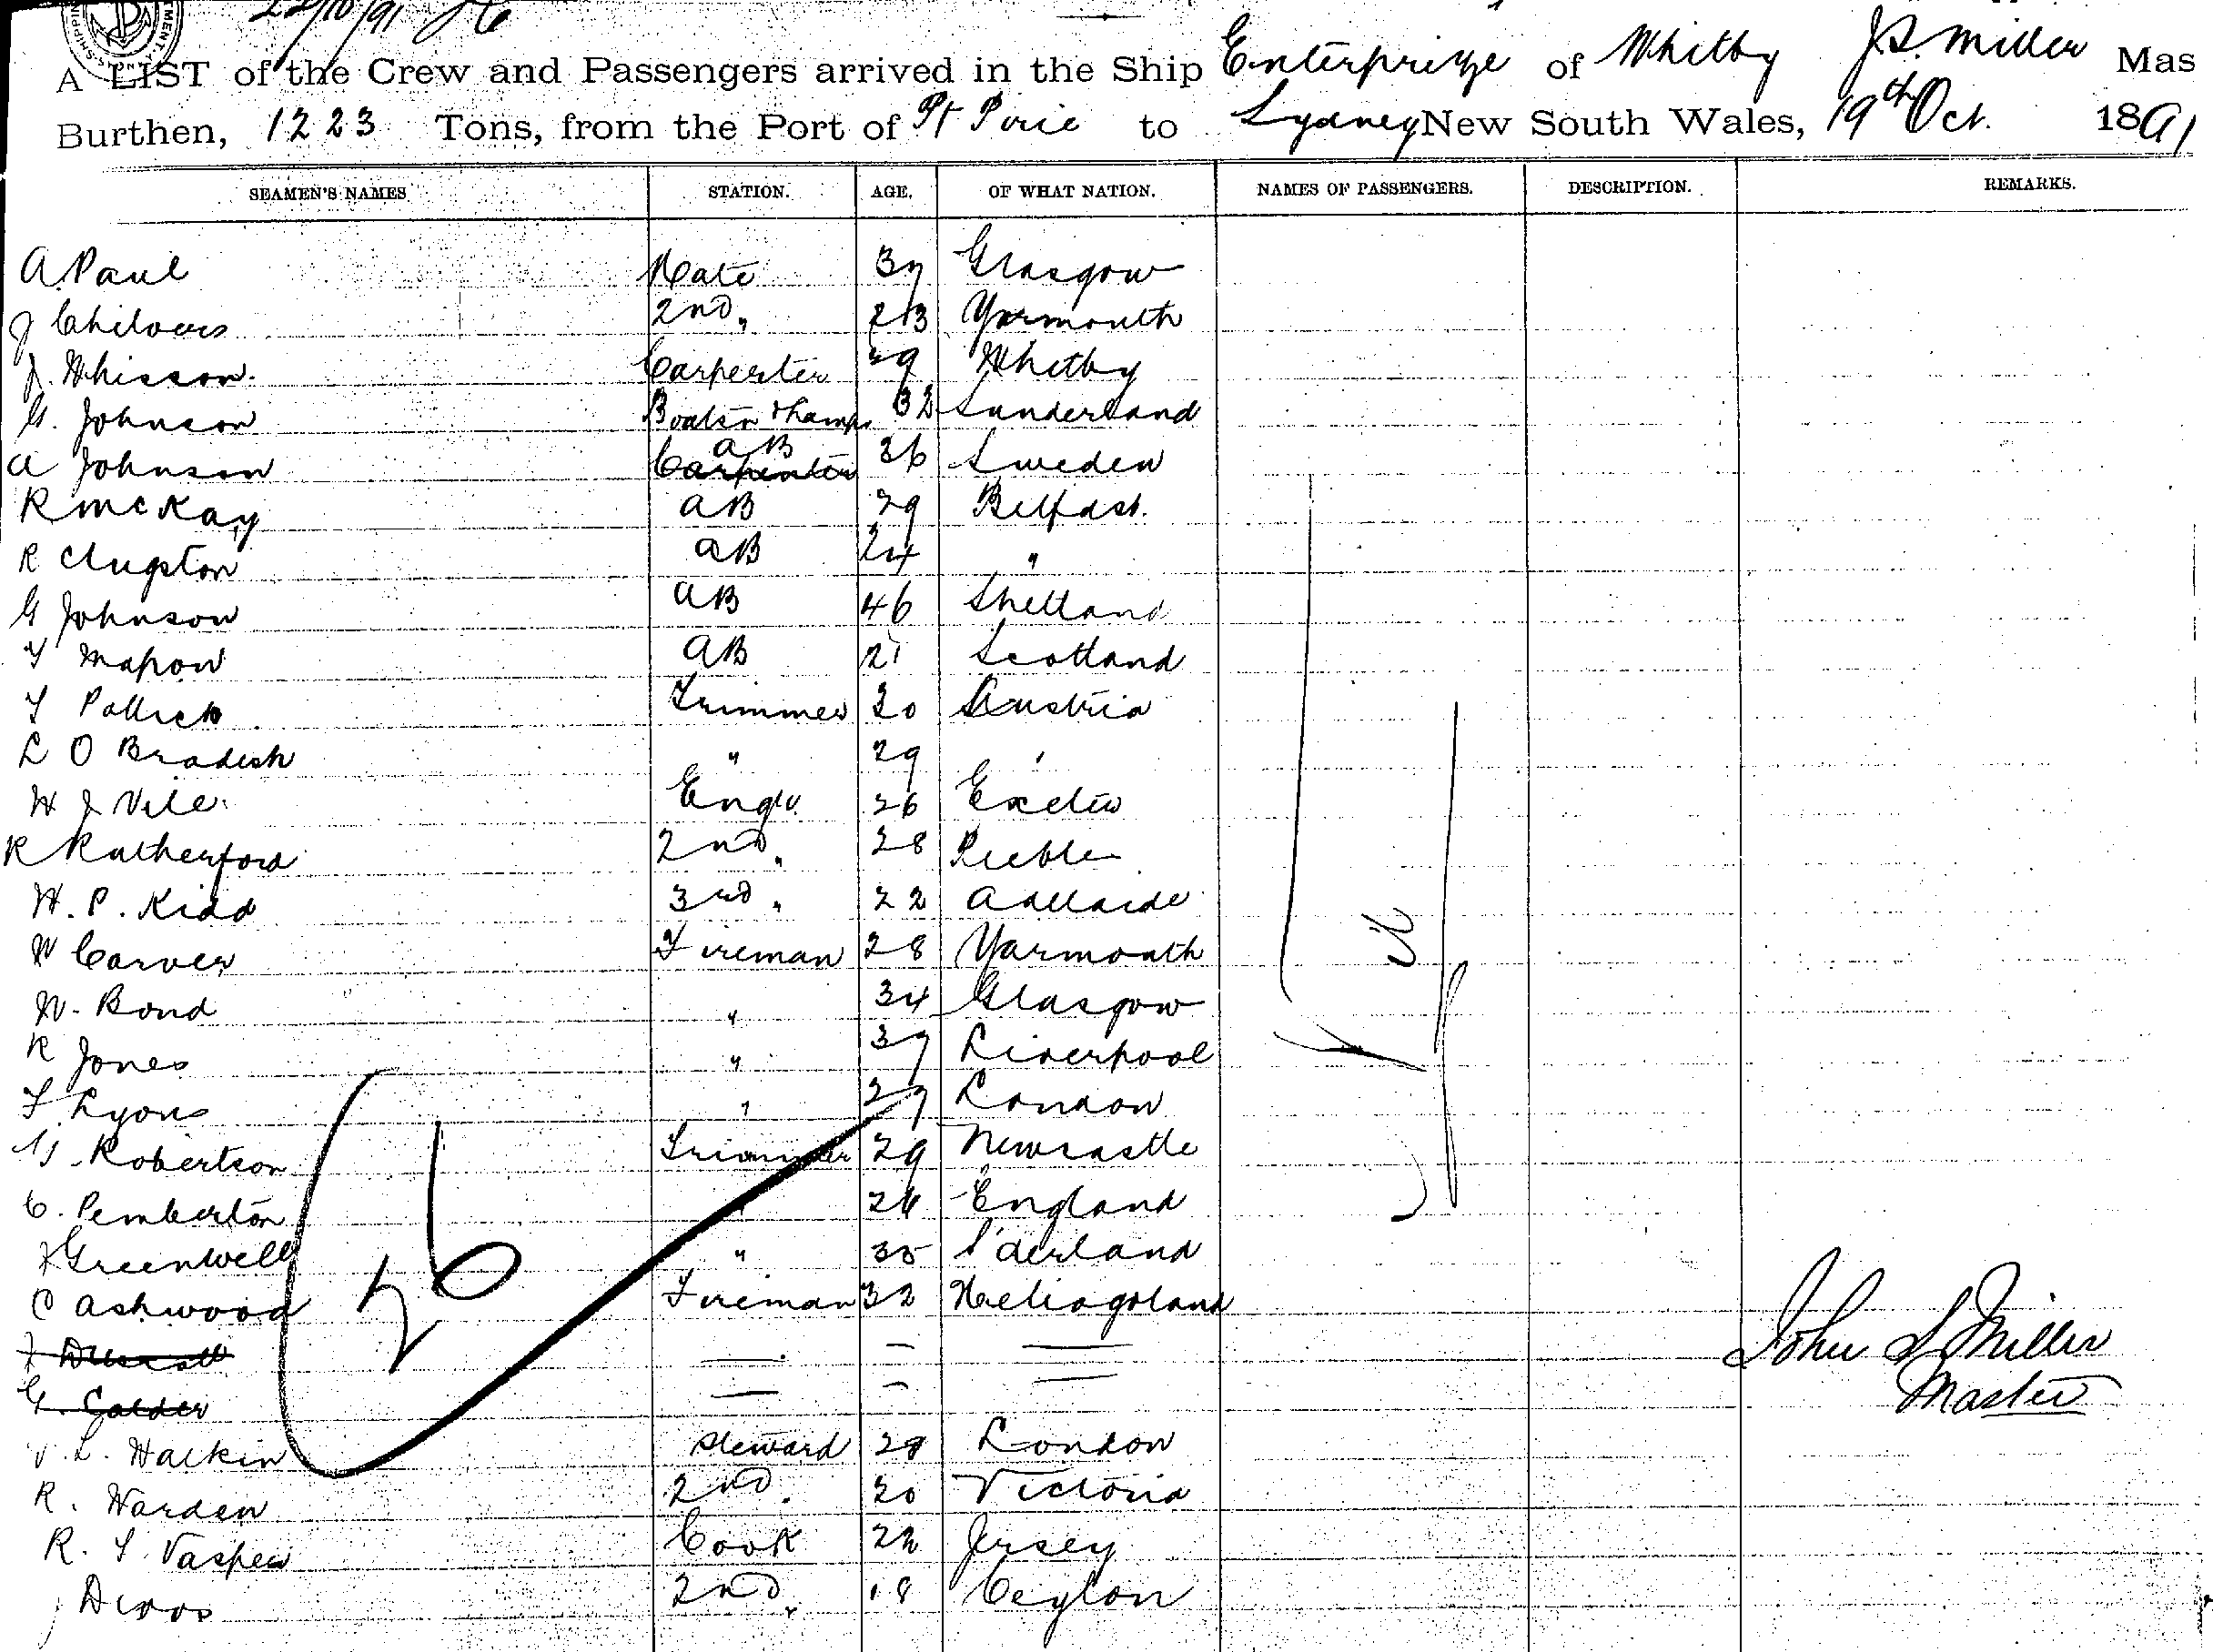 22/10/91
A LIST of the Crew and Passengers arrived in the Ship Enterprize of Whitby J.S. Miller Mas
Burthen, 1223 Tons, from the Port of Pt Pirie to Sydney New South Wales, 19th Oct. 1891
SEAMEN'S NAMES STATION. AGE. OF WHAT NATION. NAMES OF PASSENGERS. DESCRIPTION. REMARKS.
A. Paul Mate 37 Glasgow
J Chilvers 2nd " 23 Yarmouth
J. Whisson. Carpenter 29 Whitby
G. Johnson Boatsn & Lamps 32 Sunderland
A Johnson Carpenter AB 36 Sweden
R McKay AB 29 Belfast.
R Clugston AB 24 "
G Johnson AB 46 Shetland
T AB 21 Scotland
T Pollick Trimmer 20 Austria
L O Bradish " 29 "
W J Vile Engr. 26 Exeter
R Rutherford 2nd " 28 Peebles
W. P. Kidd 3rd " 22 Adelaide
W Carver Fireman 28 Yarmouth
W. Bond " 34 Glasgow
R Jones " 37 Liverpool
T Lyons " 27 London
G. Robertson Trimmer 29 Newcastle
C. Pemberton " 24 England
Greenwell " 35 S'derland
C Ashwood Fireman 32 Heliogoland
26
John S Miller
G. Calder
Master
L. Halkin Steward 28 London
R. Warden 2nd. 20 Victoria
R. T. Vasper Cook 22 Jersey
2nd " 18 Ceylon